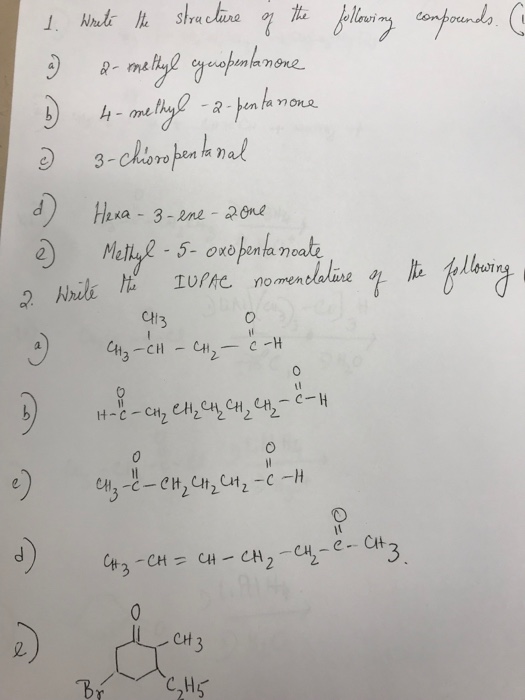 1. Write the structure of the following compounds. (
a) 2-methyl cyclopentanone
b) 4-methyl-2-pentanone
c) 3-chloropentanal
d) Hexa-3-ene-2one
e) Methyl-5-oxopentanoate
2. Write the IUPAC nomenclature of the following
CH3 O
a) CH3-CH-CH2-C-H
O O
b) H-C-CH2CH2CH2CH2CH2-C-H
O O
c) CH3-C-CH2CH2CH2-C-H
O
d) CH3-CH=CH-CH2-CH2-C-CH3.
O
e) CH3
Br C2H5